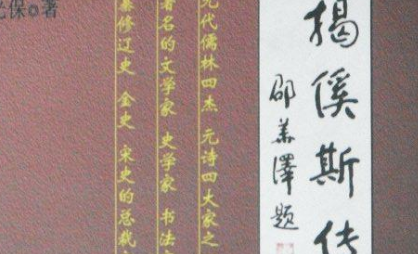 揭傒斯传
邵华泽题
元代儒林四杰 元诗四大家之
著名的文学家 史学家 书法
纂修辽史 金史 宋史的总裁
保◎著